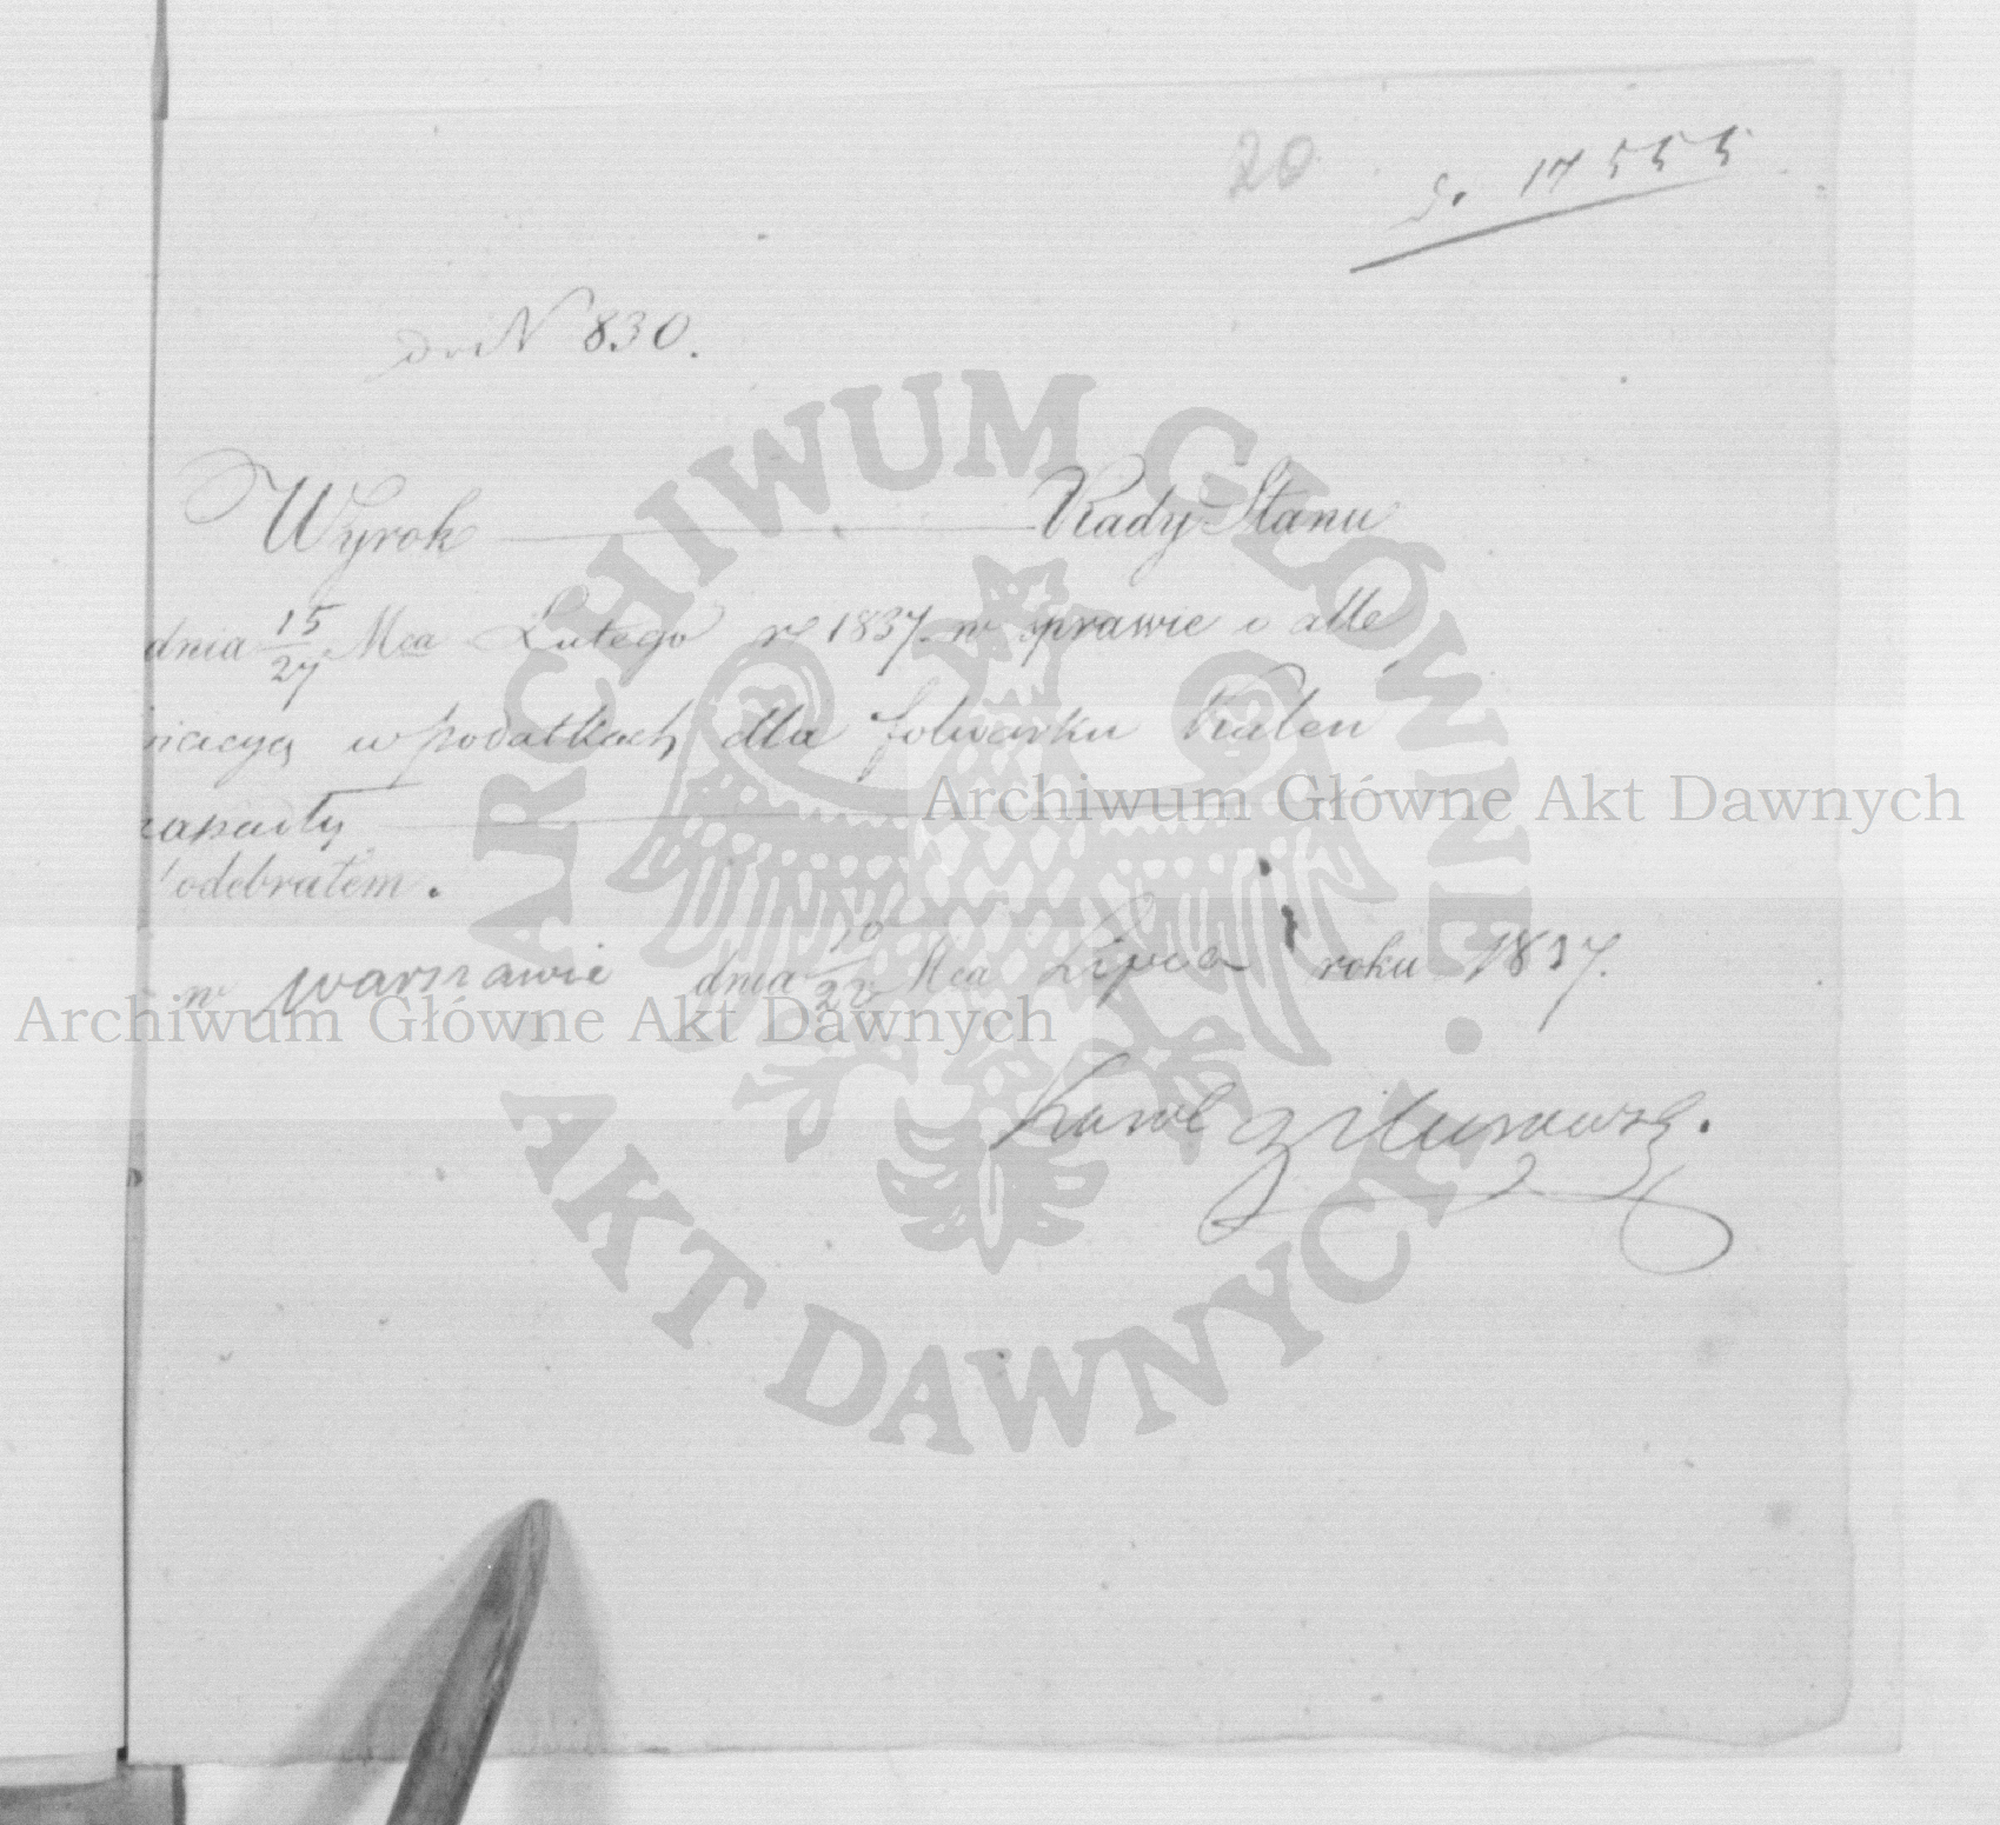 20
D. 17555
do N 830.
Wyrok — Rady Stanu
dnia 15/27 Mca Lutego r 1837 w sprawie o alle
niacyą w podatkach dla folwarku Kalen
zapadły
odebrałem.
w Warszawie dnia 10/22 Mca Lipca roku 1837.
Karol
ARCHIWUM GŁÓWNE · AKT DAWNYCH ·
Archiwum Główne Akt Dawnych
Archiwum Główne Akt Dawnych